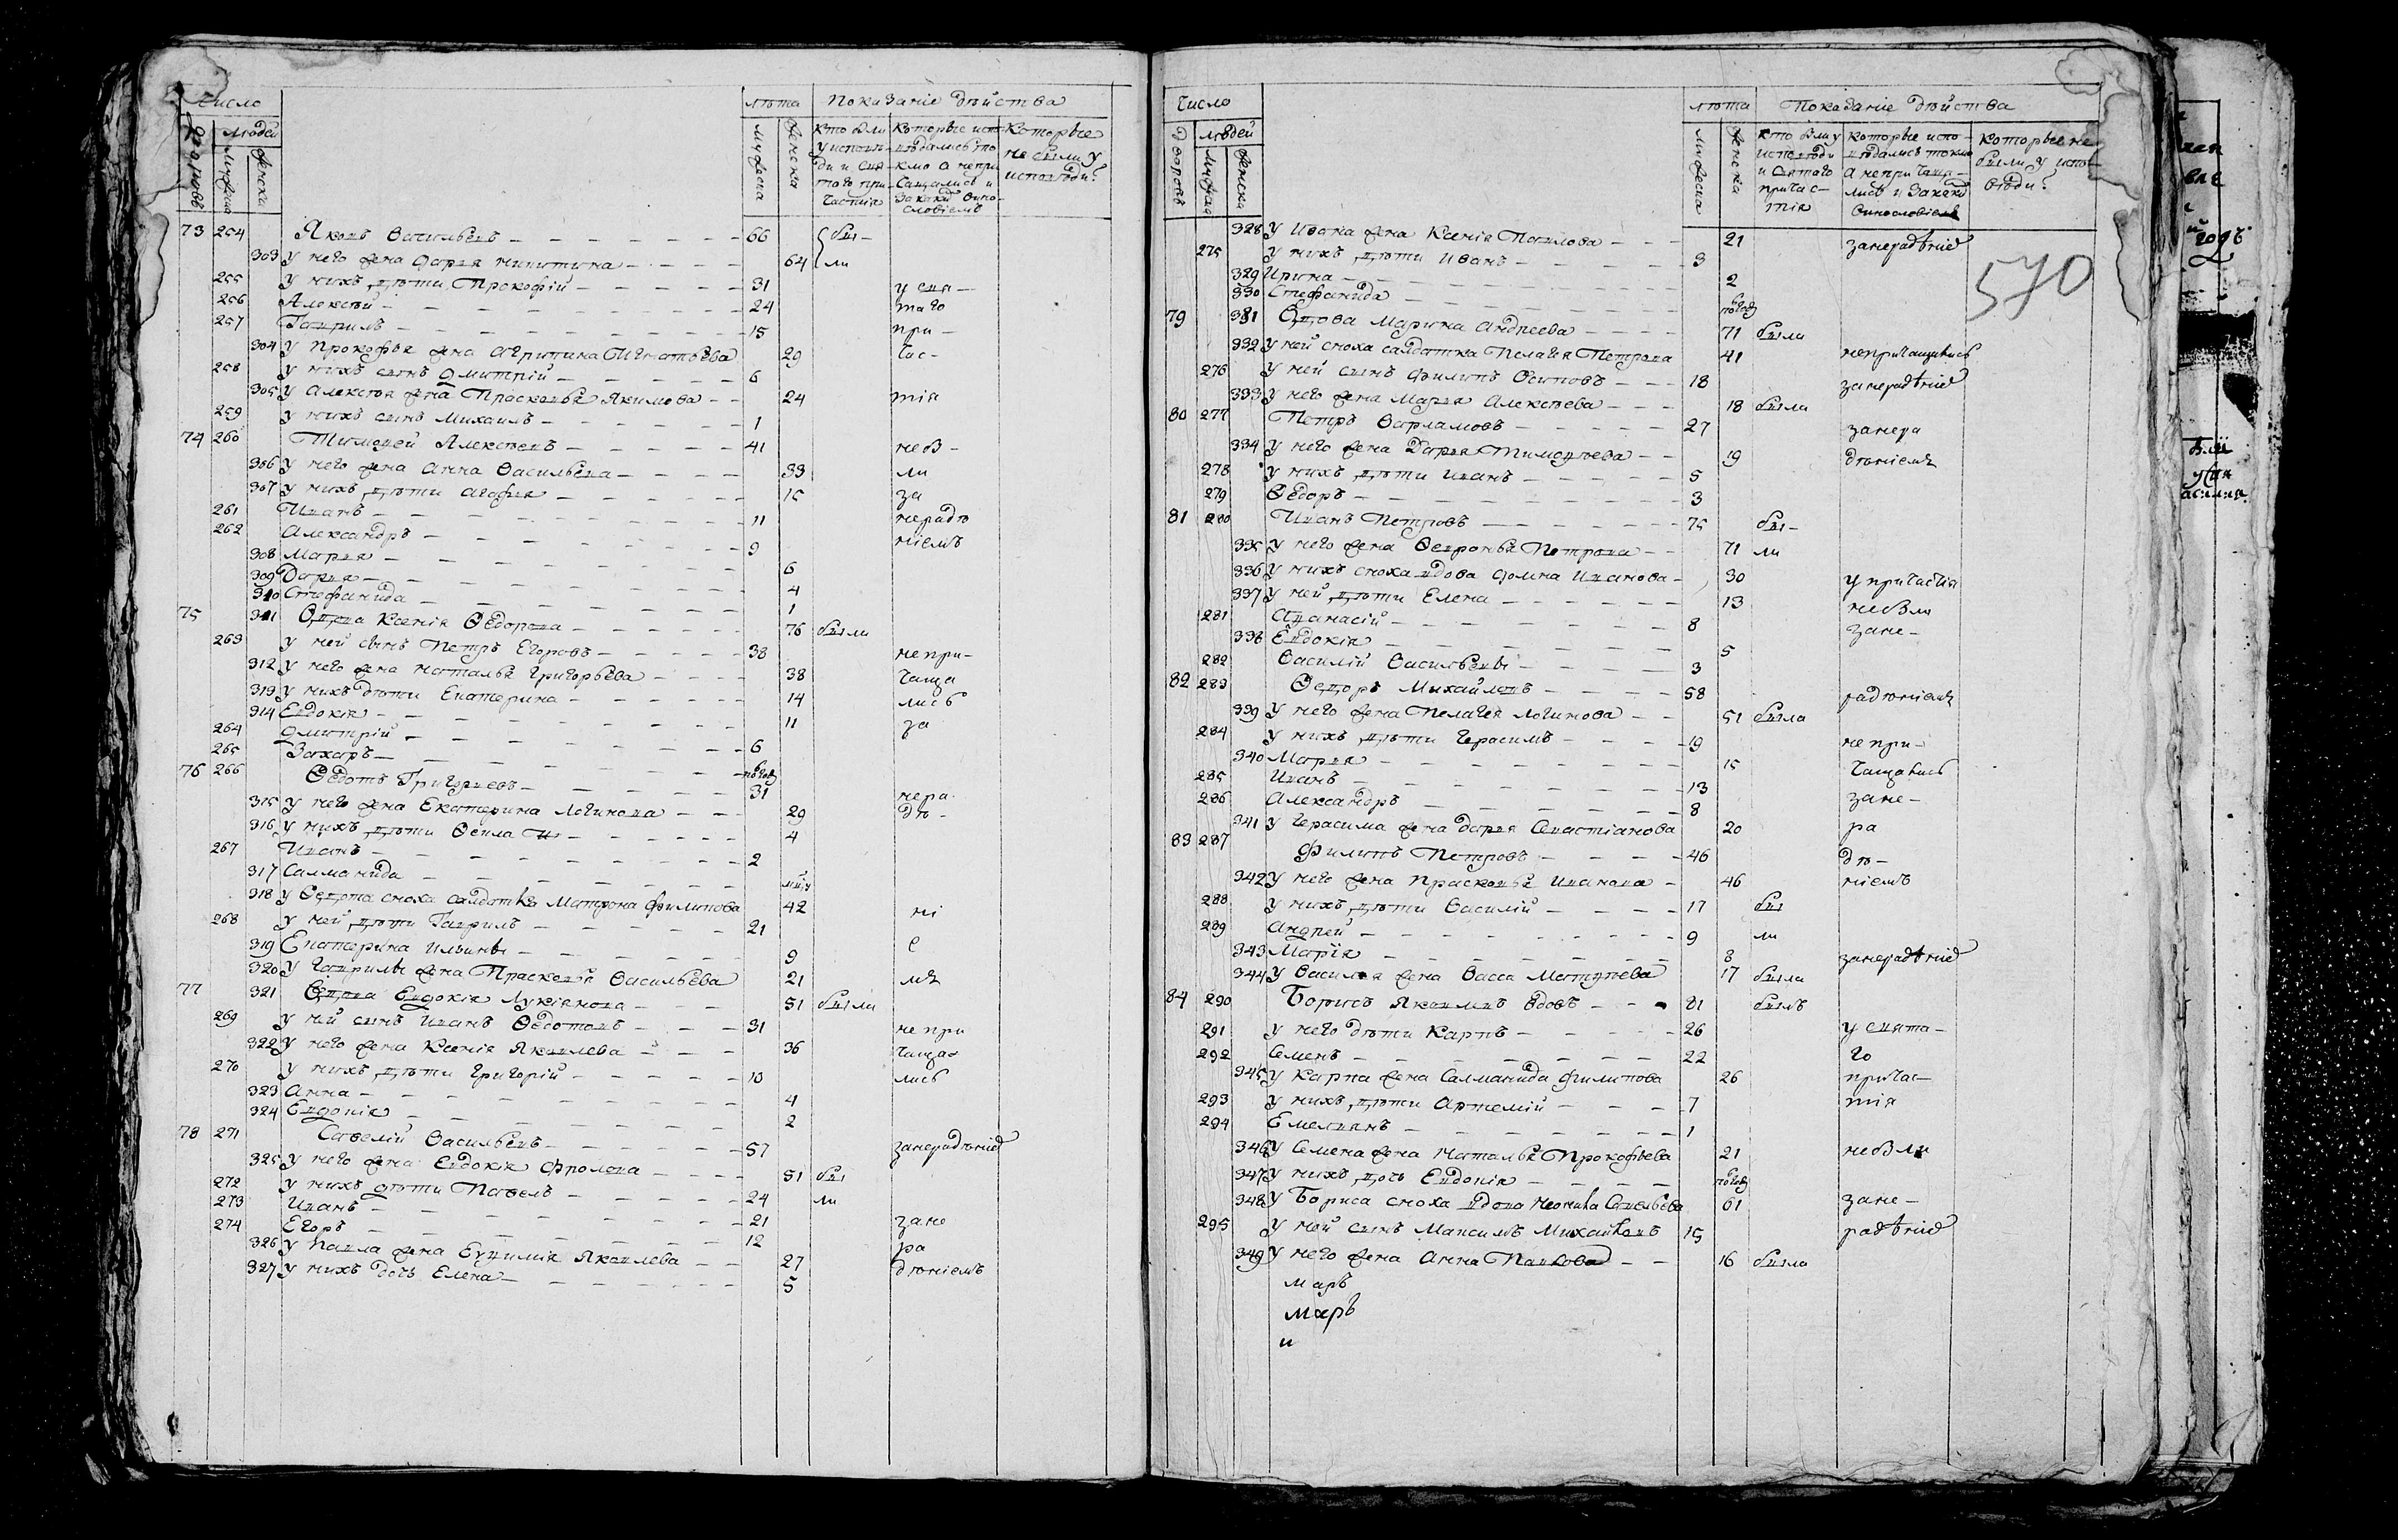 Число
лѣта Показаніе дѣйства
Дворовъ
людей
мужеска
женска
мужеска
женска
кто были у исповѣди и святаго причастія
Которые исповѣдались токмо а непричащались и Закакимъ Винословіемъ
Которые не были у исповѣди?
73 254 Яковъ Васильевъ 66 бы-
303 У него жена Дарья Никитина 64 ли
255 У нихъ дѣти Прокофій 31 у свя-
256 Алексѣй 24 таго
257 Гаврилъ 15 при-
304 У Прокофья жена Агрипина Игнатьева 29 час-
258 У нихъ сынъ Дмитрій 6
305 У Алексѣя жена Прасковья Якимова 24 тія
259 У нихъ сынъ Михаилъ 1
74 260 Тимофей Алексѣевъ 41 небы-
306 У него жена Анна Васильева 39 ли
307 У нихъ дѣти Агафья 15 за
261 Иванъ 11 нерадѣ
262 Александръ 9 ніемъ
308 Марья 6
309 Дарья 4
310 Стефанида 1
75 311 Вдова Ксенія Ѳедорова 76 были
263 У ней сынъ Петръ Егоровъ 38 непри-
312 У него жена Наталья Григорьева 38 чаща
313 У нихъ дѣти Екатерина 14 лись
314 Евдокія 11 за
264 Дмитрій 6
265 Захаръ полгод
76 266 Ѳедотъ Григорьевъ 31 нера
315 У него жена Екатерина Логинова 29 дѣ-
316 У нихъ дѣти Ѳекла 4
267 Иванъ 2
317 Саламанида
318 У Ѳедота сноха салдатка Матрона Филипова 42 ні
268 У ней дѣти Гаврилъ 21
319 Екатерина Ильины 9 е
320 У Гаврилы жена Прасковья Васильева 21 мъ
77 321 Вдова Евдокія Лукіянова 51 были
269 У ней сынъ Иванъ Ѳедотовъ 31 непри
322 У него жена Ксенія Яковлева 36 чаща
270 У нихъ дѣти Григорій 10 лись
323 Анна 4
324 Евдокія 2
78 271 Савелій Васильевъ 57 занерадѣніе
325 У него жена Евдокія Фролова 51 бы
272 У нихъ дѣти Павелъ 24 ли
273 Иванъ 21 зане
274 Егоръ 12 ра
326 У Павла жена Евфимія Яковлева 27 дѣніемъ
327 У нихъ дочь Елена 5
Число
лѣта Показаніе дѣйства
Дворовъ
людей
мужеска
женска
мужеска
женска
кто были у исповѣди и святаго причастія
которые исповѣдались токмо а непричащались и Закакимъ Винословіемъ
которые не были у исповѣди?
328 У Ивана жена Ксенія Павлова 21 занерадѣніе
570
275 У нихъ дѣти Иванъ 3
329 Ирина 2
330 Стефанида полгод
79 331 Вдова Марина Андреева 71 была
332 У ней сноха салдатка Пелагея Петрова 41 непричащались
276 У ней сынъ Филипъ Осиповъ 18 занерадѣніе
333 У него жена Марья Алексѣева 18 была
80 277 Петръ Варламовъ 27 занера
334 У него жена Дарья Тимофѣева 19 дѣніемъ
278 У нихъ дѣти Иванъ 5
279 Ѳедоръ 3
81 280 Иванъ Петровъ 75 бы-
335 У него жена Ѳевронья Петрова 71 ли
336 У нихъ сноха вдова Домна Иванова 30 у причастія
337 У ней дѣти Елена 13 небыли
281 Афанасій 8 зане-
338 Евдокія 5
282 Василій Васильевы 3
82 283 Ѳедоръ Михайловъ 58 радѣніемъ
339 У него жена Пелагея Логинова 51 была
284 У нихъ дѣти Герасимъ 19 непри-
340 Марья 15 чащались
285 Иванъ 13 зане-
286 Александръ 8
341 У Герасима жена Дарья Севастіанова 20 ра
83 287 Филипъ Петровъ 46 дѣ-
342 У него жена Прасковья Иванова 46 ніемъ
288 У нихъ дѣти Василій 17 бы
289 Андрей 9 ли
343 Марія 8 занерадѣніе
344 У Василья жена Васса Матфѣева 17 была
84 290 Борисъ Яковлевъ Вдовъ 81 былъ
291 У него дѣти Карпъ 26 у свята-
292 Семенъ 22 го
345 У Карпа жена Саламанида Филипова 26 причас-
293 У нихъ дѣти Артемій 7 тія
294 Емельянъ 1
346 У Семена жена Наталья Прокофьева 21 небыли
347 У нихъ дочь Евдокія полгод
348 У Бориса сноха вдова Неонила Савельева 61 зане-
295 У ней сынъ Максимъ Михайловъ 15 радѣніе
349 У него жена Анна Павлова 16 была
маръ
маръ
и
годъ